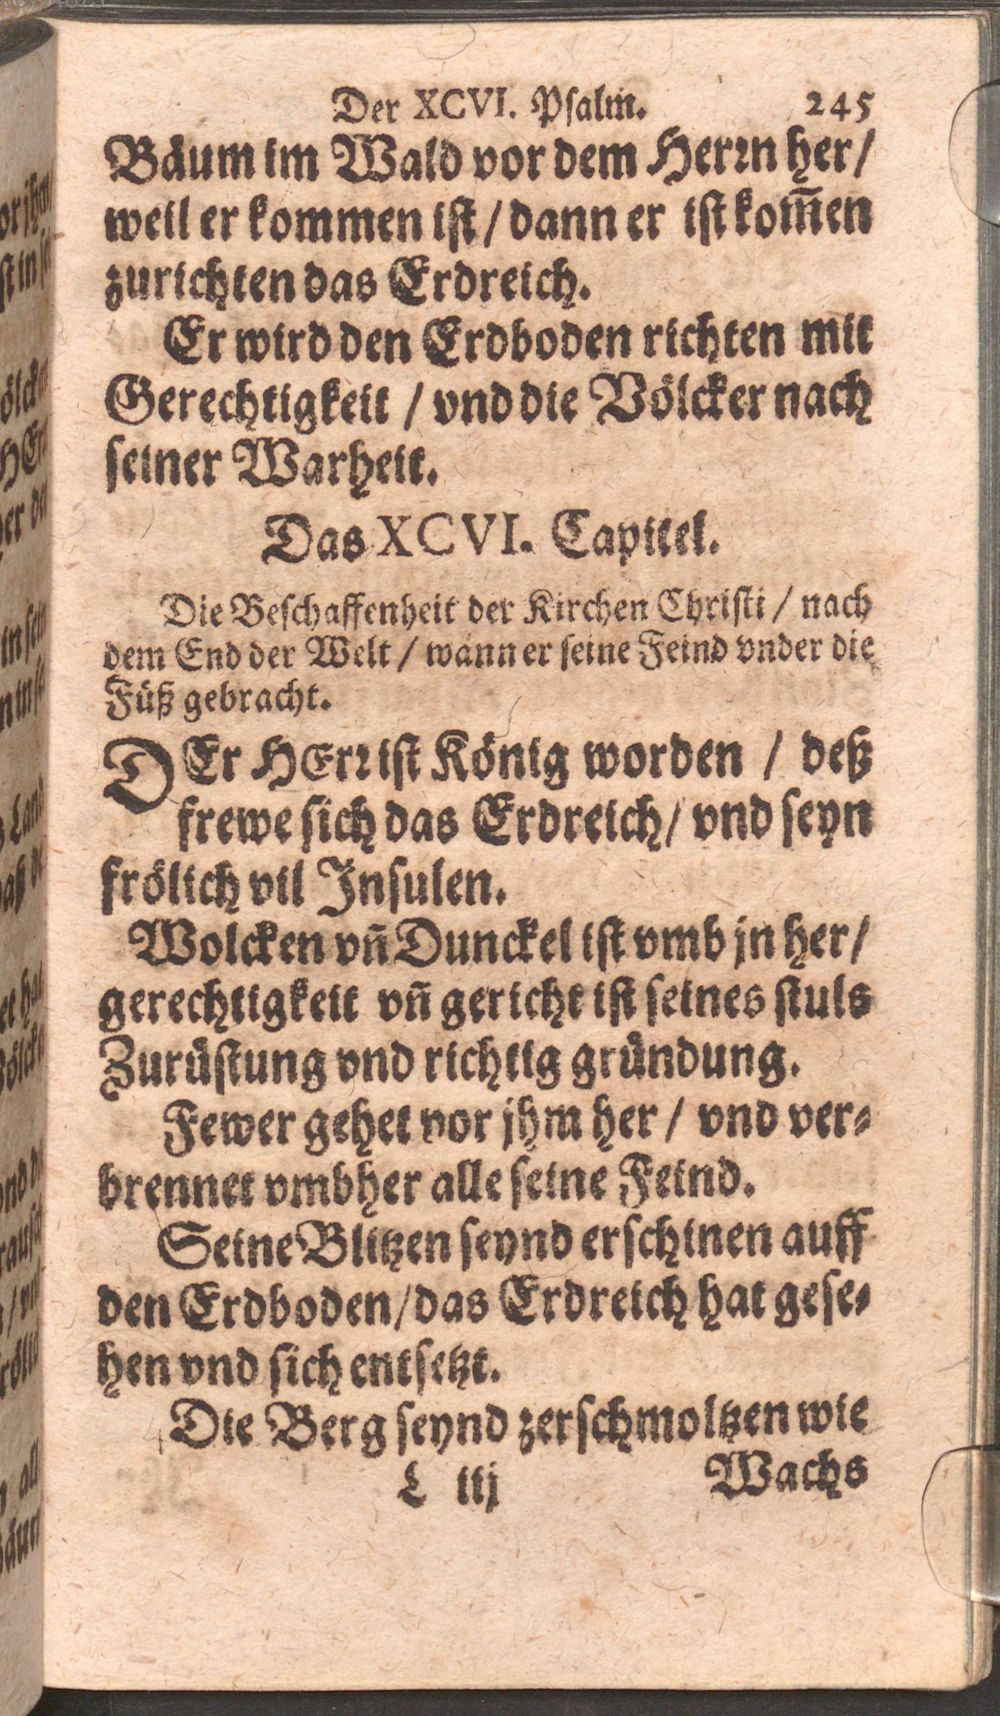 Der XCVI. Psalm. 245
Bäum im Wald vor dem Herꝛn her/
weil er kommen ist / dann er ist kom̃en
zurichten das Erdreich.
Er wird den Erdboden richten mit
Gerechtigkeit / vnd die Völcker nach
seiner Warheit.
Das XCVI. Capitel.
Die Beschaffenheit der Kirchen Christi / nach
dem End der Welt / wann er seine Feind vnder die
Füß gebracht.
DEr HErꝛ ist König worden / deß
frewe sich das Erdreich/ vnd seyn
frölich vil Insulen.
Wolcken vñ Dunckel ist vmb jn her/
gerechtigkeit vñ gericht ist seines stuls
Zurüstung vnd richtig gründung.
Fewer gehet vor jhm her / vnd ver-
brennet vmbher alle seine Feind.
Seine Blitzen seynd erschinen auff
den Erdboden/das Erdreich hat gese-
hen vnd sich entsetzt.
Die Berg seynd zerschmoltzen wie
L iij Wachs